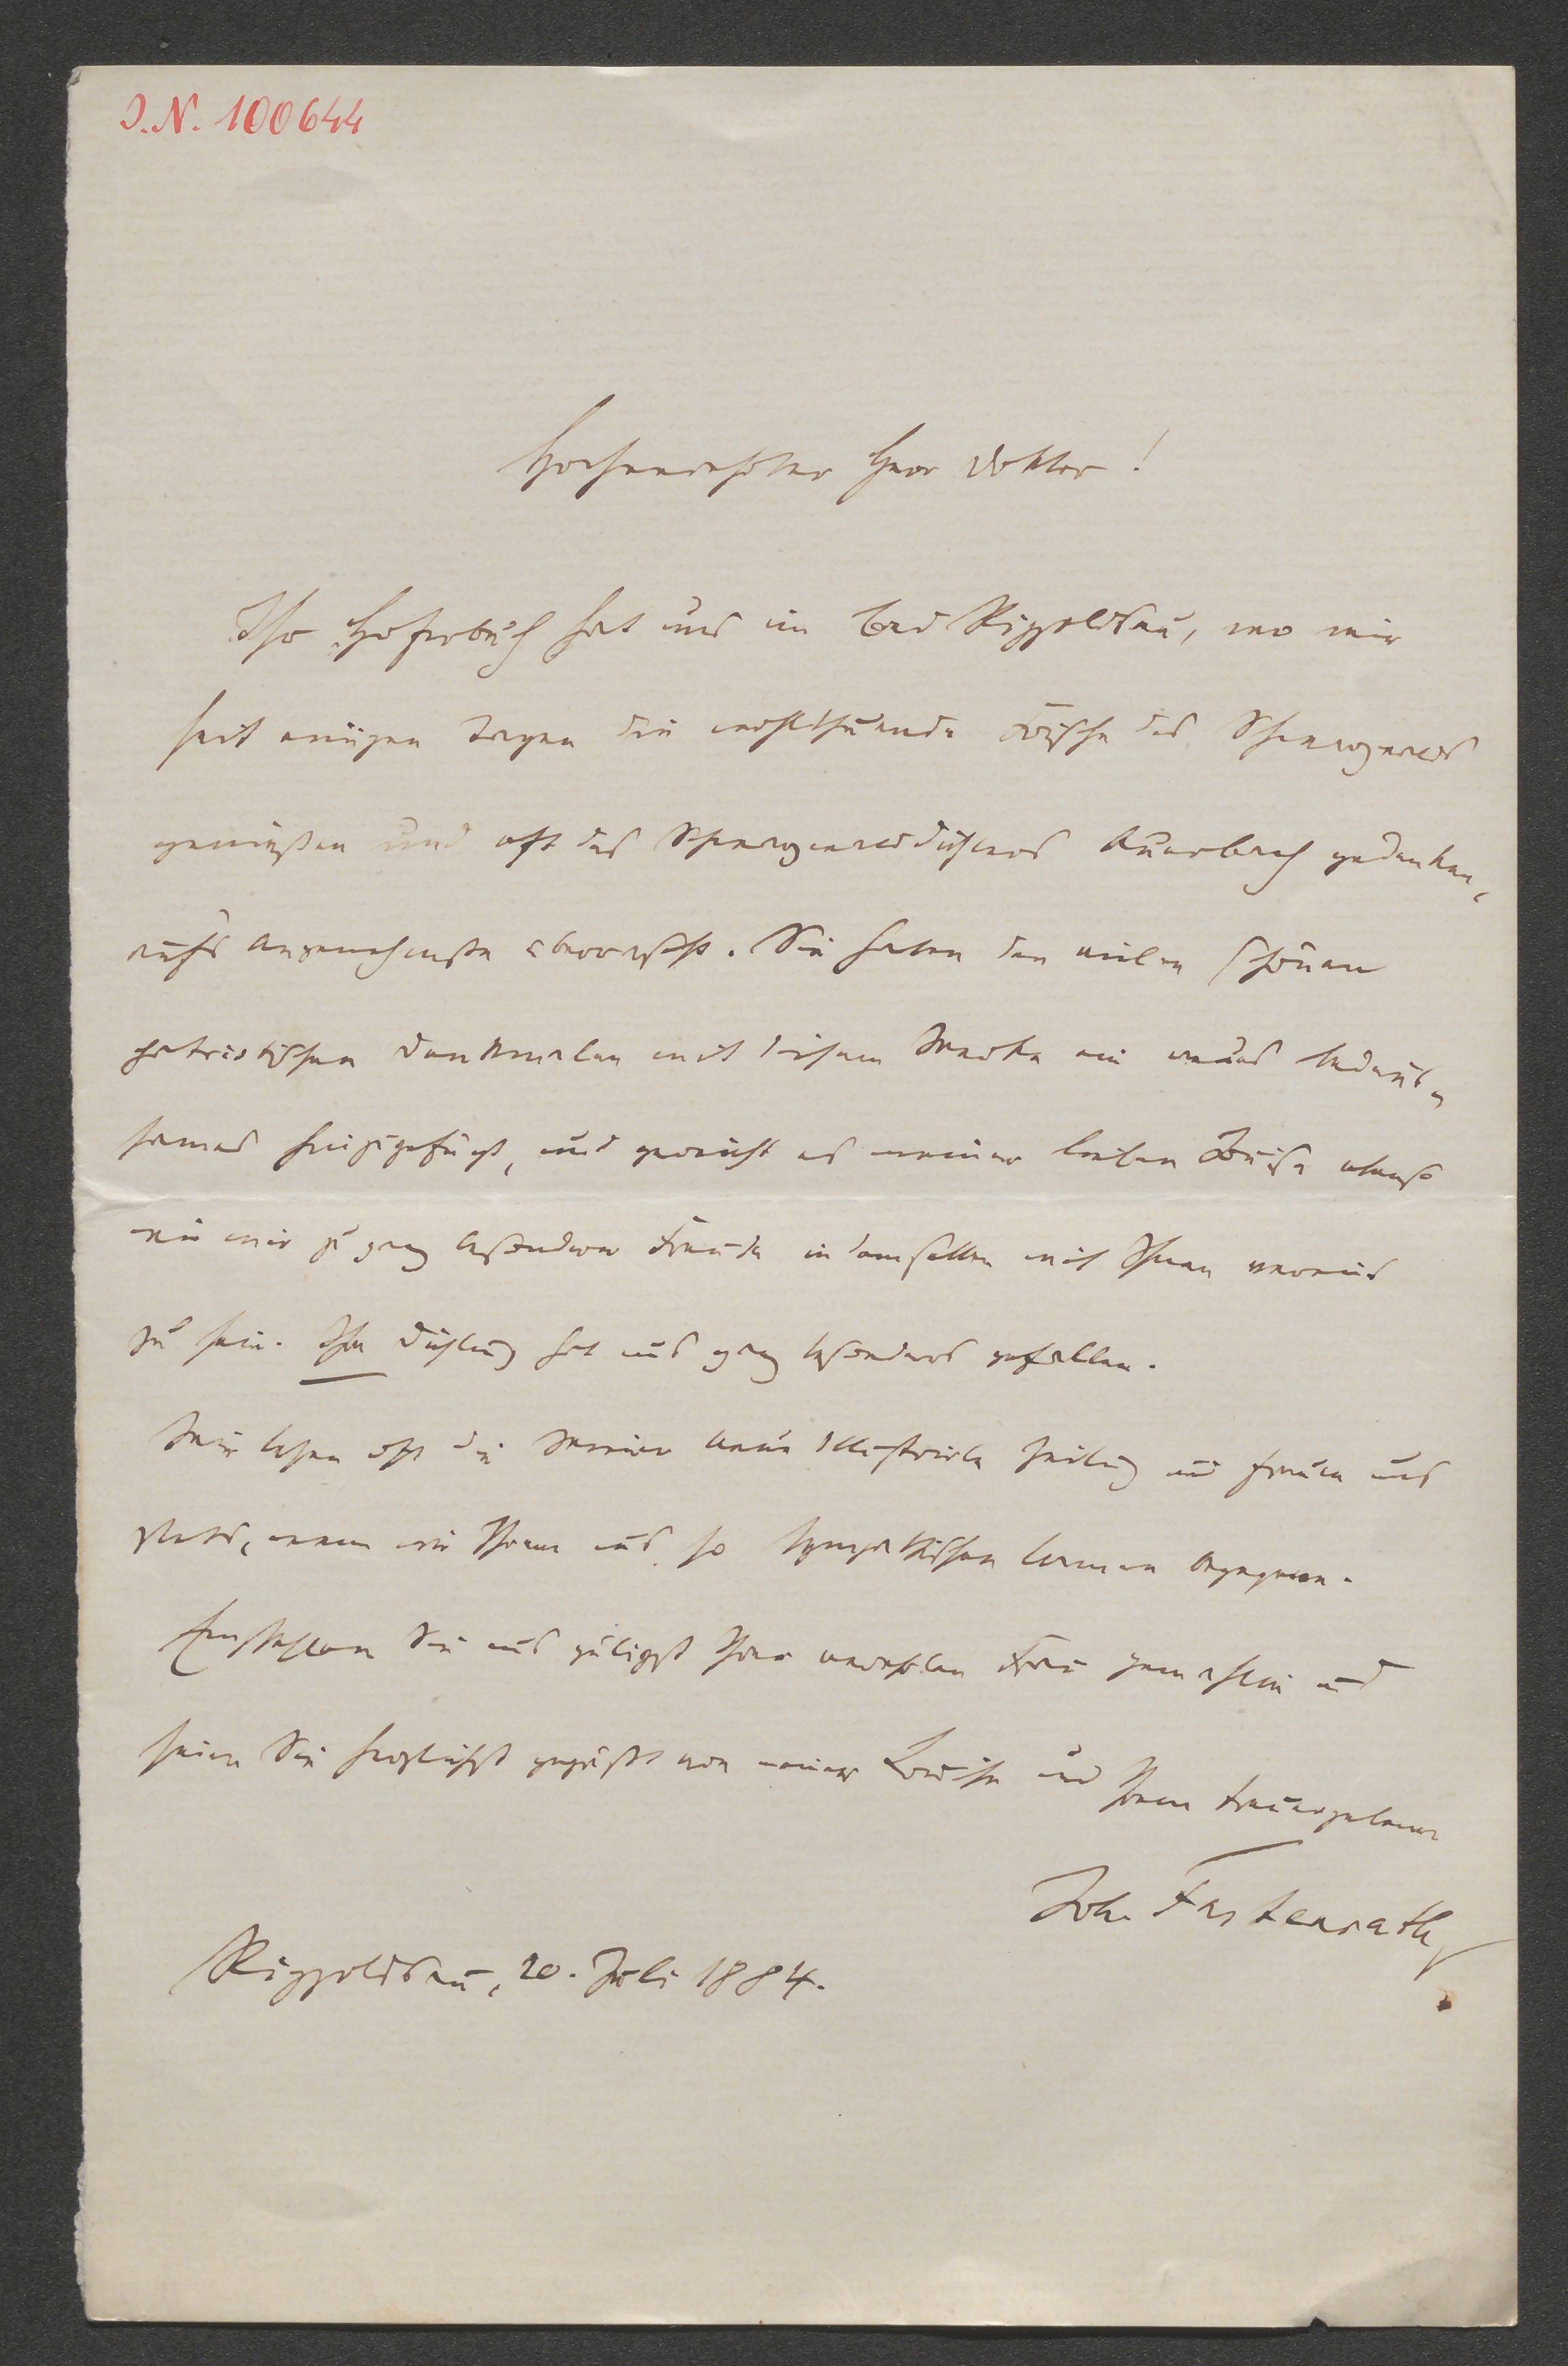 J.N. 100644
Hochverehrter Herr Doktor!
Ihr Hoferbuch hat uns im Bad Rippoldsau, wo wir
seit einigen Tagen die wohlthuende Frische des Schwarzwalds
genießen und oft des Schwarzwalddichters Auerbach gedenken,
aufs Angenehmste überrascht. Sie haben den vielen schönen
patriotischen Denkmalen mit diesem Werke ein neues bedeut-
sames hinzugefügt, und gereicht es meiner lieben Louise ebenso
wie mir zu ganz besonderer Freude in demselben mit Ihnen vereint
zu sein. Ihre Dichtung hat uns ganz besonders gefallen.
Wir lesen oft die Wiener Neue Illustrirte Zeitung und freuen uns
stets, wenn wir Ihrem uns so sympathischen Namen begegnen.
Empfehlen Sie uns gütigst Ihrer verehrten Frau Gemahlin und
seien Sie herzlichst gegrüßt von meiner Louise und Ihrem treuergebenen
Joh. Fastenrath
Rippoldsau, 20. Juli 1884.